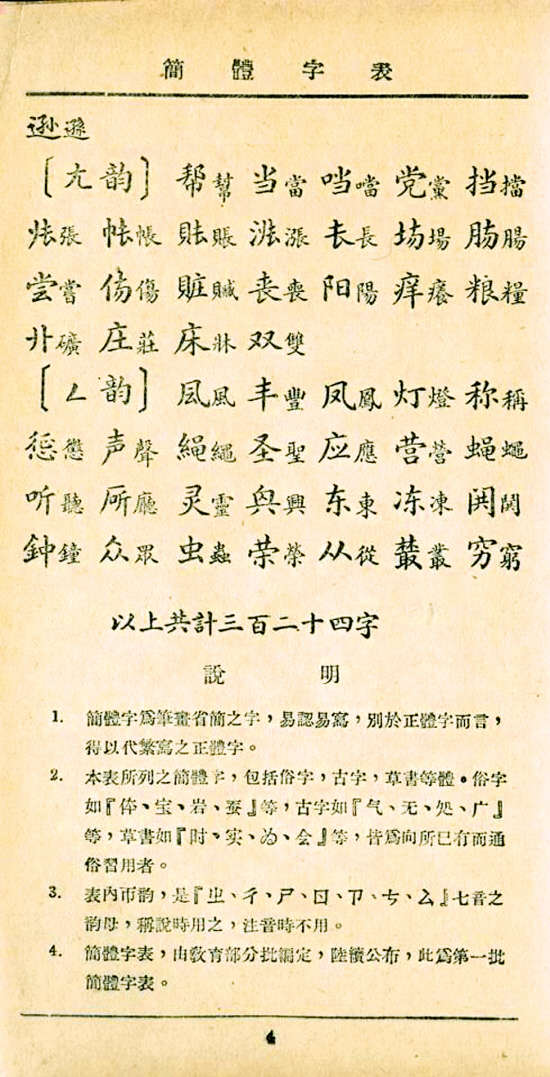 簡體字表
逊遜
〔ㄤ韵〕 帮幫 当當 哴噹 党黨 挡擋
張 帳 賬 漲 長 场場 肠腸
尝嘗 伤傷 賍贓 丧喪 阳陽 痒癢 粮糧
卝礦 庄莊 床牀 双雙
〔ㄥ韵〕 凮風 丰豐 凤鳳 灯燈 称稱
惩懲 声聲 縄繩 圣聖 应應 营營 蝇蠅
听聽 厛廳 灵靈 兴興 东東 冻凍 閧
鈡鐘 众眾 虫蟲 荣榮 从從 叢 穷窮
以上共計三百二十四字
說明
1. 簡體字爲筆畫省簡之字，易認易寫，別於正體字而言，
得以代繁寫之正體字。
2. 本表所列之簡體字，包括俗字，古字，草書等體。俗字
如『体、宝、岩、蚕』等，古字如『气、无、処、广』
等，草書如『时、实、为、会』等，皆爲向所已有而通
俗習用者。
3. 表內帀韵，是『ㄓ、ㄔ、ㄕ、ㄖ、ㄗ、ㄘ、ㄙ』七音之
韵母，稱說時用之，注音時不用。
4. 簡體字表，由敎育部分批編定，陸續公布，此爲第一批
簡體字表。
4